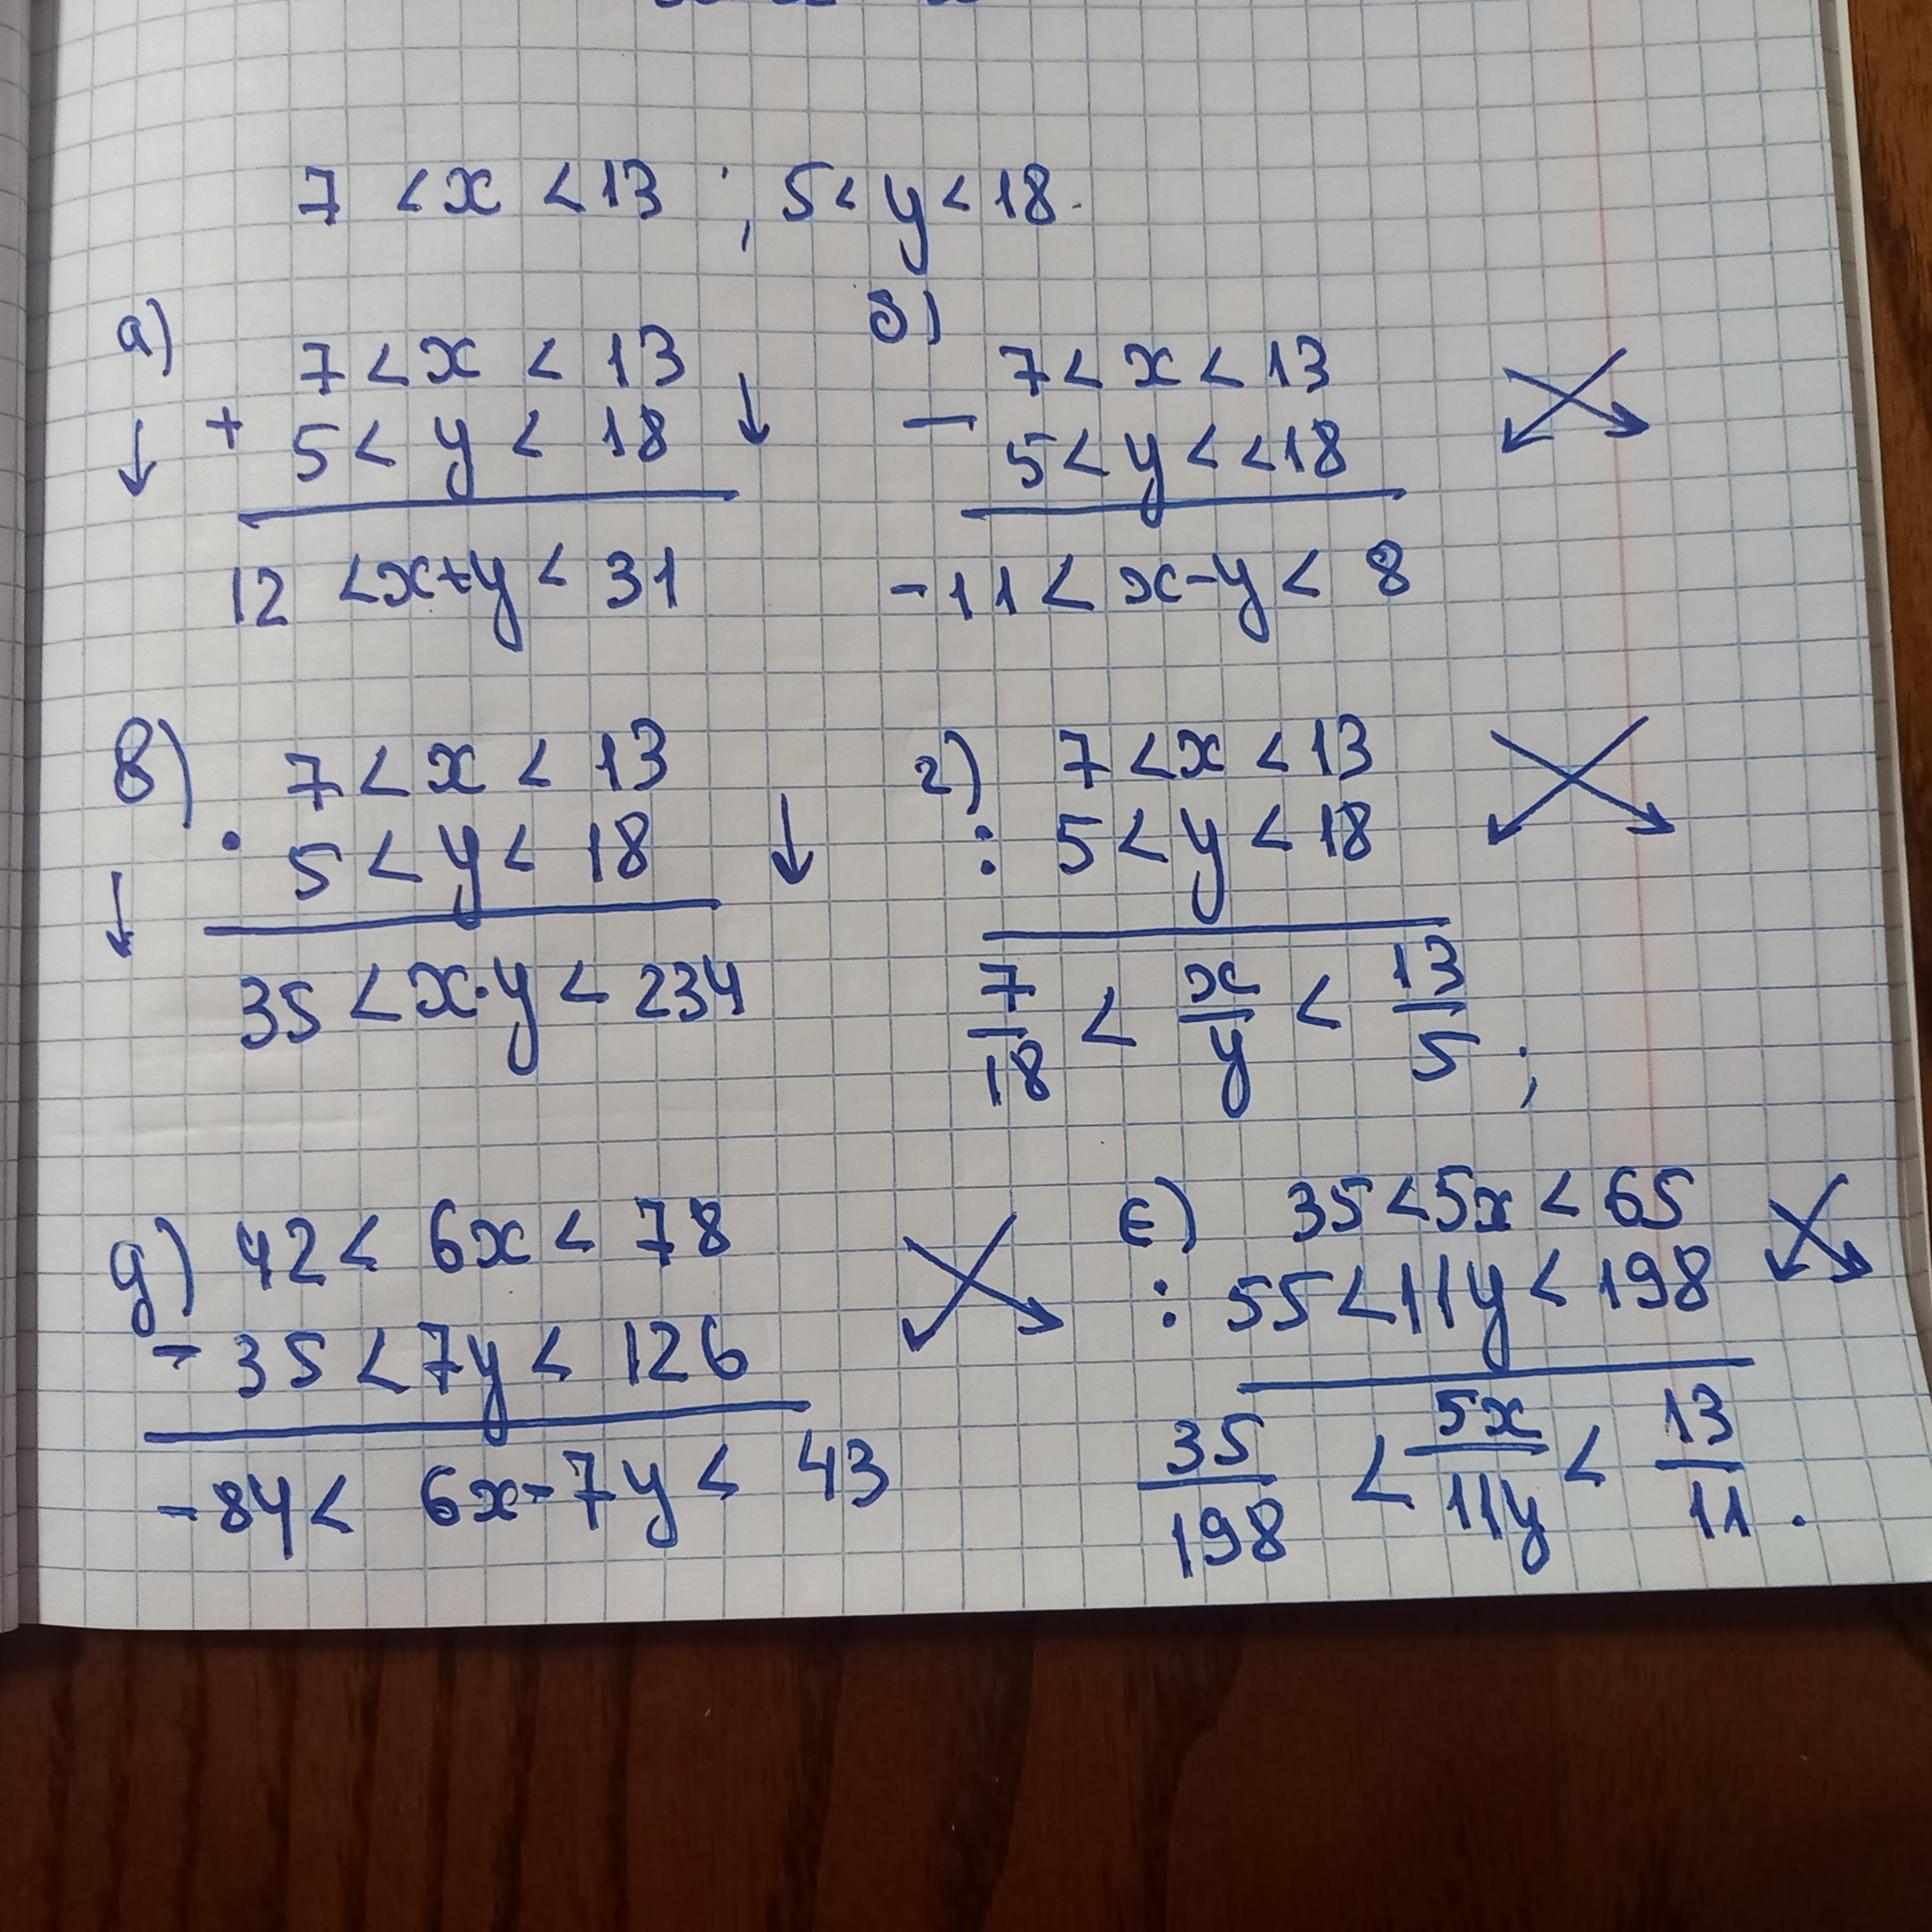 7 < x < 13 ; 5 < y < 18.
а)
7 < x < 13
+ 5 < y < 18
12 < x+y < 31
б)
7 < x < 13
− 5 < y < < 18
-11 < x-y < 8
в)
7 < x < 13
· 5 < y < 18
35 < x·y < 234
г) 7 < x < 13
: 5 < y < 18
7/18 < x/y < 13/5 ;
д) 42 < 6x < 78
- 35 < 7y < 126
-84 < 6x-7y < 43
е) 35 < 5x < 65
: 55 < 11y < 198
35/198 < 5x/11y < 13/11 .